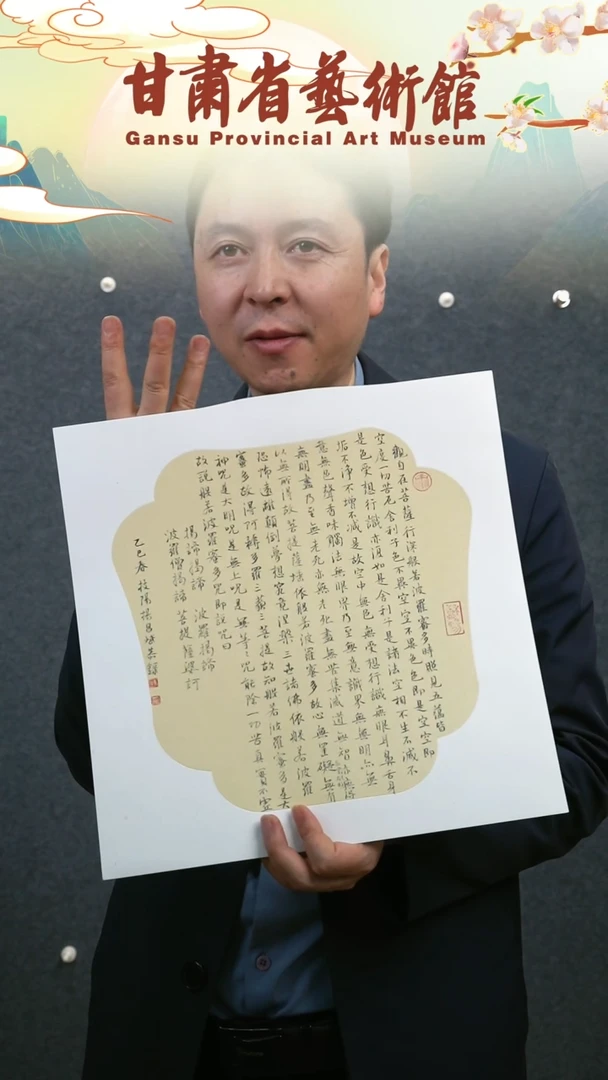 甘肅省藝術館
Gansu Provincial Art Museum
觀自在菩薩行深般若波羅蜜多時照見五蘊皆
空度一切苦厄舍利子色不異空空不異色色即是空空即
是色受想行識亦復如是舍利子是諸法空相不生不滅不
垢不淨不增不減是故空中無色無受想行識無眼耳鼻舌身
意無色聲香味觸法無眼界乃至無意識界無無明亦無
無明盡乃至無老死亦無老死盡無苦集滅道無智亦無得
以無所得故菩提薩埵依般若波羅蜜多故心無罣礙無有
恐怖遠離顛倒夢想究竟涅槃三世諸佛依般若波羅
蜜多故得阿耨多羅三藐三菩提故知般若波羅蜜多是大
神咒是大明咒是無上咒是無等等咒能除一切苦真實不虛
故說般若波羅蜜多咒即說咒曰
揭諦揭諦 波羅揭諦
波羅僧揭諦 菩提薩婆訶
乙巳春